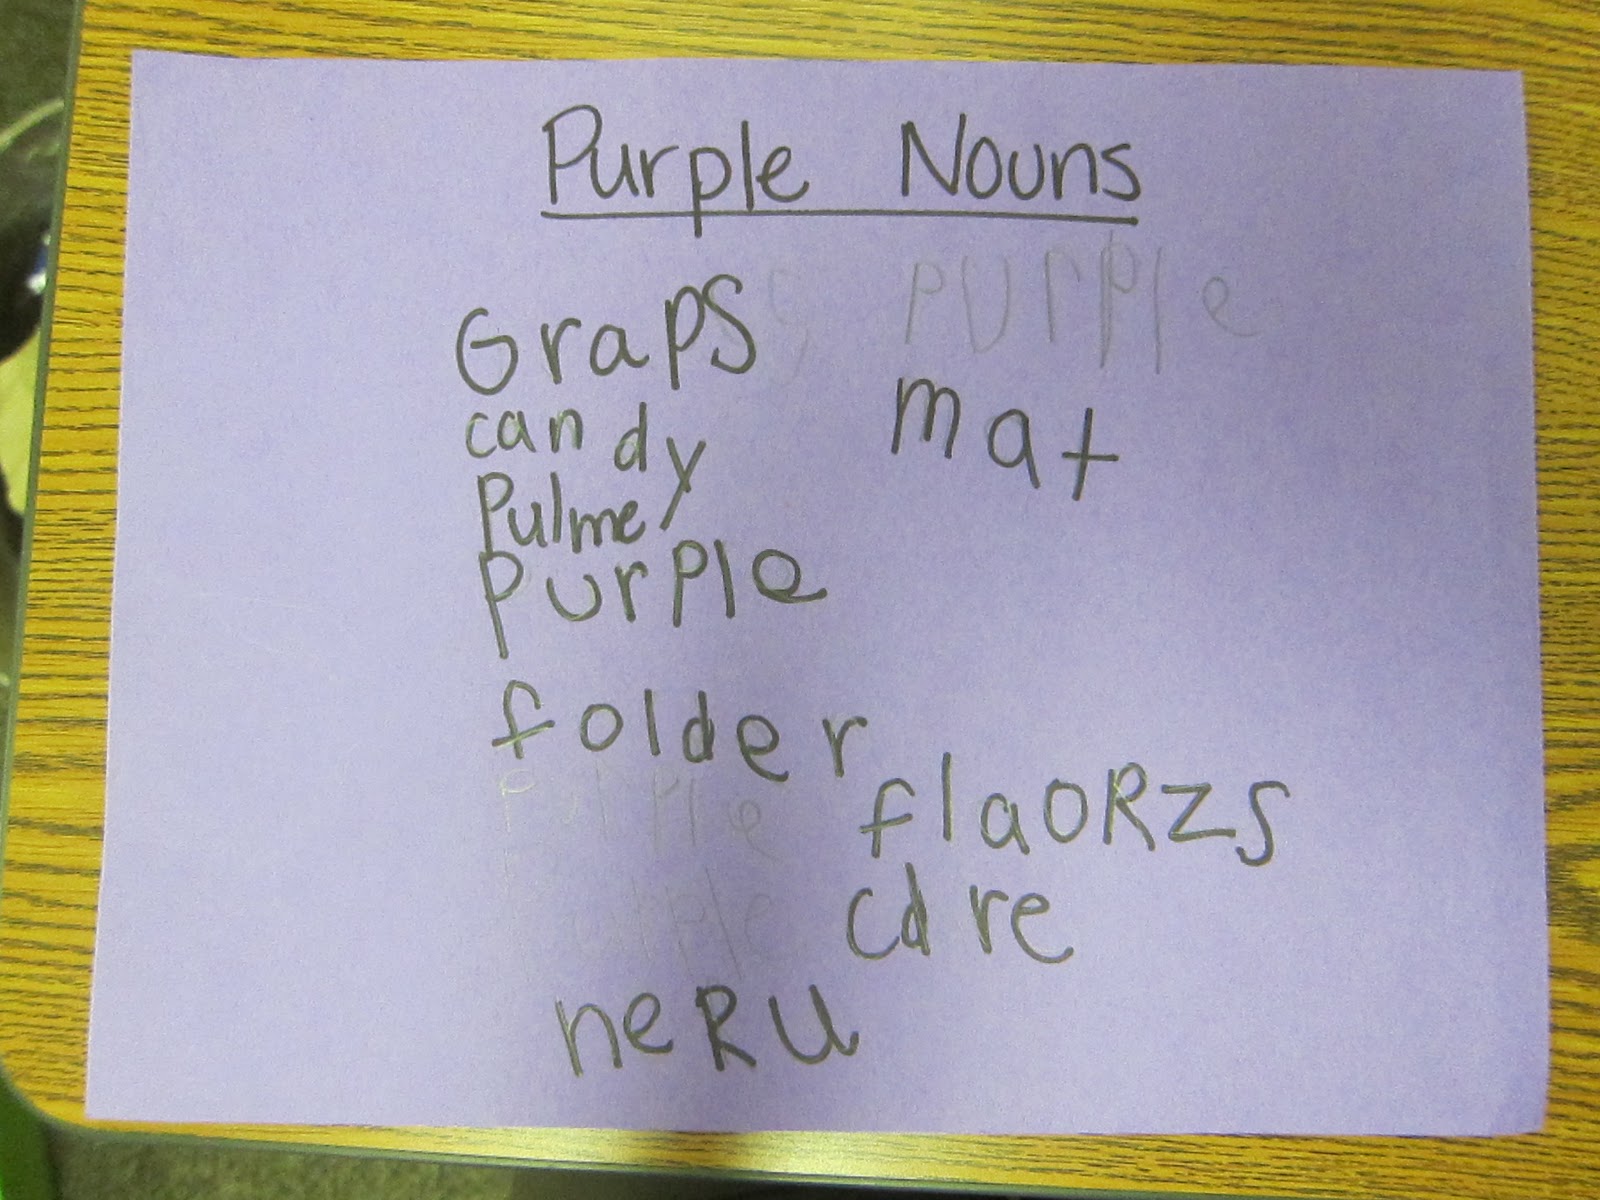 Purple Nouns
Graps
purple
mat
candy
Pulme
purple
folder
purple
purple
flaoRzs
cdre
neRu